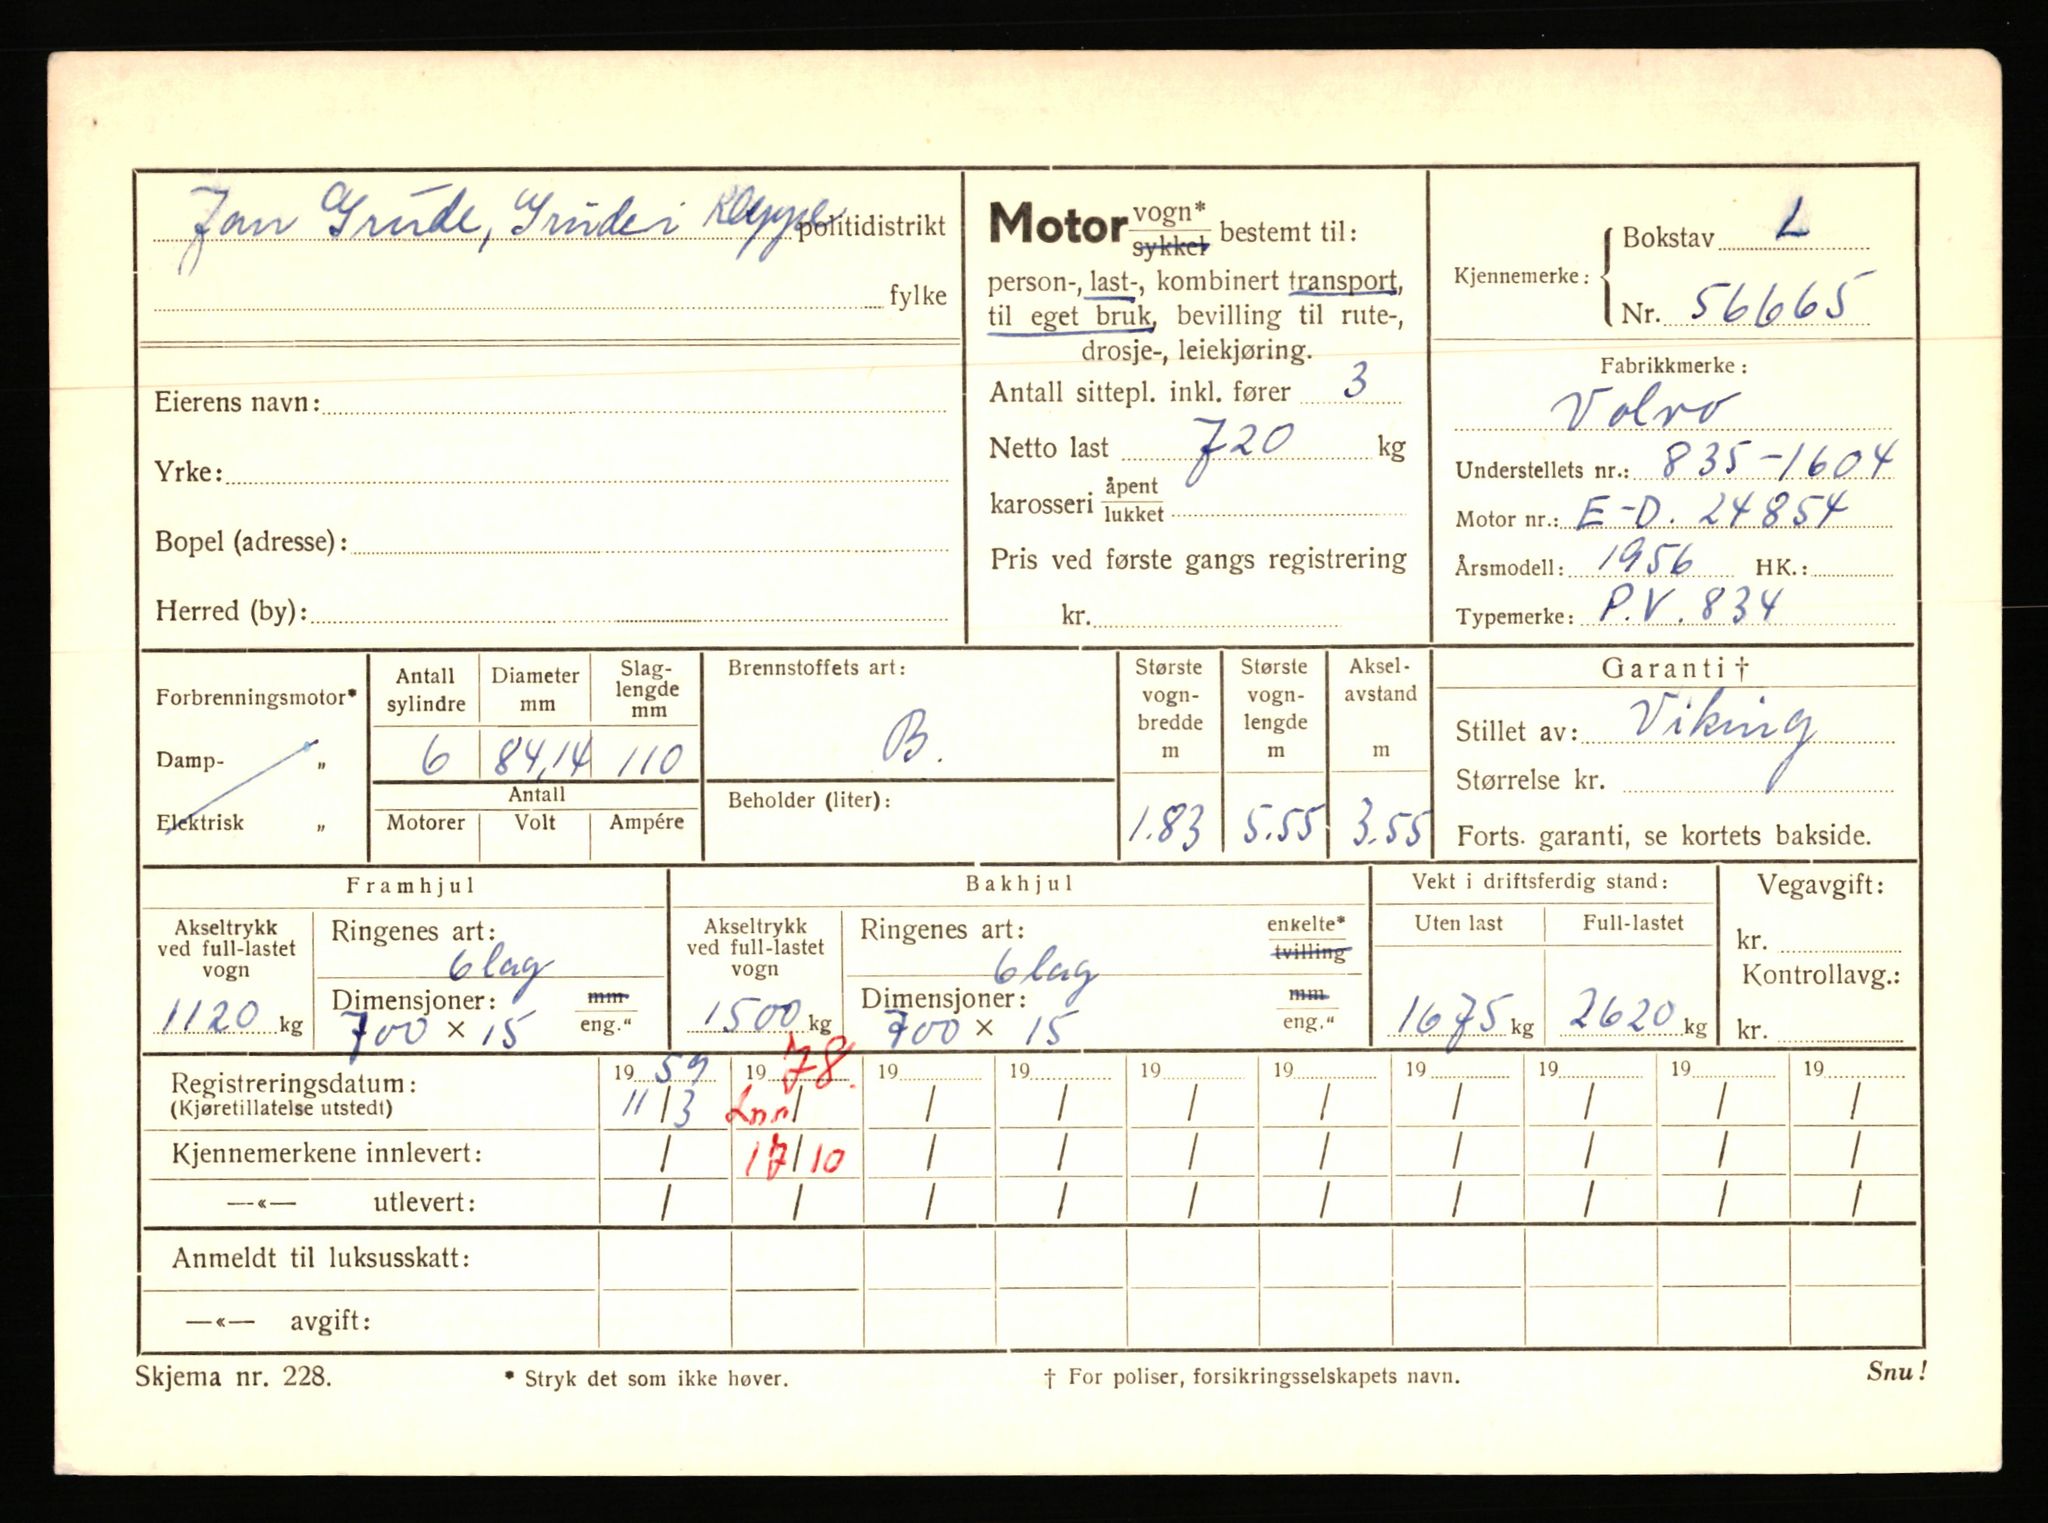 Jan Grude, Grude i Kleppe politidistrikt
fylke
Eierens navn:
Yrke:
Bopel (adresse):
Herred (by):
Motor vogn* sykkel bestemt til:
person-, last-, kombinert transport,
til eget bruk, bevilling til rute-,
drosje-, leiekjøring.
Antall sittepl. inkl. fører 3
Netto last 720 kg
karosseri åpent lukket
Pris ved første gangs registrering
kr.
Kjennemerke:
Bokstav L
Nr. 56665
Fabrikkmerke:
Volvo
Understellets nr.: 835-1604
Motor nr.: E-D. 24854
Årsmodell: 1956 HK.:
Typemerke: P.V. 834
Forbrenningsmotor*
Damp- „
Elektrisk „
Antall sylindre
Diameter mm
Slag-lengde mm
6 84,14 110
Antall
Motorer Volt Ampére
Brennstoffets art:
B.
Beholder (liter):
Største vogn-bredde m
1.83
Største vogn-lengde m
5.55
Aksel-avstand m
3.55
Garanti †
Stillet av: Viking
Størrelse kr.
Forts. garanti, se kortets bakside.
Framhjul
Akseltrykk ved full-lastet vogn
1120 kg
Ringenes art:
6 lag
Dimensjoner: mm eng."
700 × 15
Bakhjul
Akseltrykk ved full-lastet vogn
1500 kg
Ringenes art: enkelte* tvilling
6 lag
Dimensjoner: mm eng."
700 × 15
Vekt i driftsferdig stand:
Uten last Full-lastet
1675 kg 2620 kg
Vegavgift:
kr.
Kontrollavg.:
kr.
Registreringsdatum: 19 59 19 78. 19 19 19 19 19 19 19 19
(Kjøretillatelse utstedt) 11/3 / / / / / / / / /
Kjennemerkene innlevert: / 17/10 / / / / / / / /
—«— utlevert: / / / / / / / / / /
Anmeldt til luksusskatt:
—«— avgift:
Skjema nr. 228. * Stryk det som ikke høver. † For poliser, forsikringsselskapets navn. Snu!